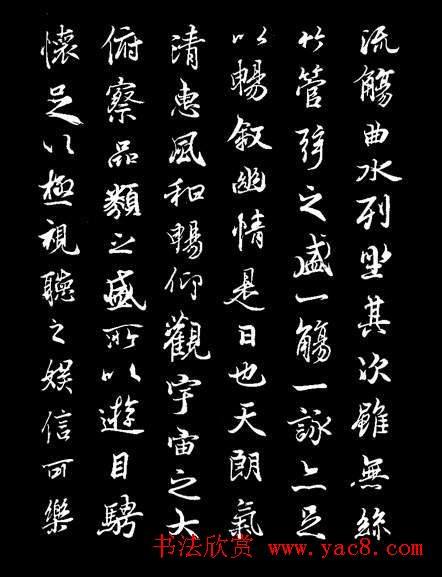 流觴曲水列坐其次雖無絲
竹管弦之盛一觴一詠亦足
以暢敘幽情是日也天朗氣
清惠風和暢仰觀宇宙之大
俯察品類之盛所以遊目騁
懷足以極視聽之娛信可樂
书法欣赏 www.yac8.com